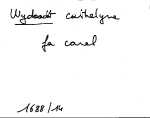 Wydasát cathelyne
fa carel
1688/14